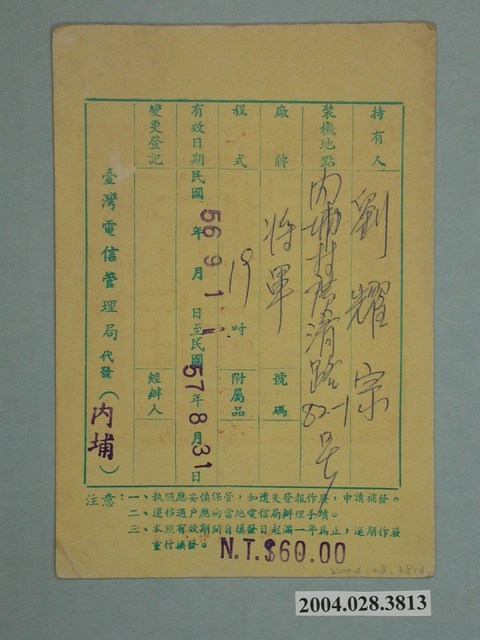 持有人 劉耀宗
裝機地點 內埔村廣濟路82-1号
廠牌 将軍 號碼
程式 19吋 附屬品
有效日期民國56年9月1日至民國57年8月31日
變更登記 經辦人
臺灣電信管理局代發（內埔）
注意：一、執照應妥慎保管，如遺失登報作廢，申請補發。
二、遷移過戶應向當地電信局辦理手續。
三、本照有效期間自填發日起滿一年為止，逾期作廢
重行換發。
N.T.$60.00
2004.028.3813
2004.028.3813